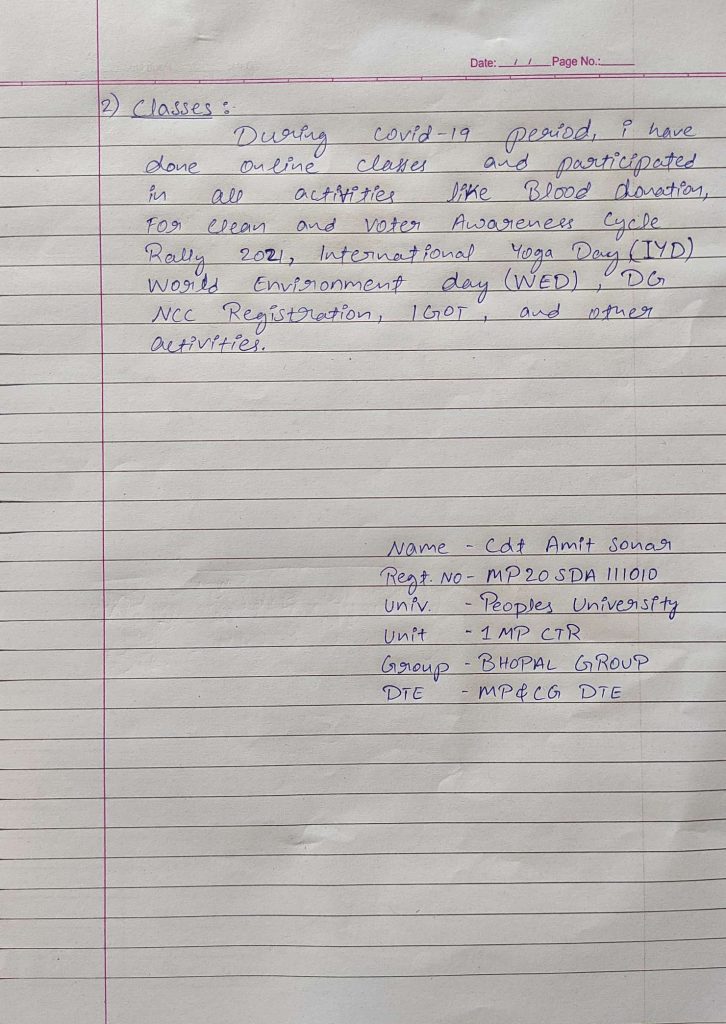 Date: / / Page No.:
2) Classes :
During covid-19 period, i have
done online classes and participated
in all activities like Blood donation,
For clean and voter Awareness Cycle
Rally 2021, International Yoga Day (IYD)
World Environment day (WED), DG
NCC Registration, IGOT, and other
activities.
Name - Cdt Amit Sonar
Regt. No - MP20SDA 111010
Univ. - Peoples University
Unit - 1 MP CTR
Group - BHOPAL GROUP
DTE - MP&CG DTE